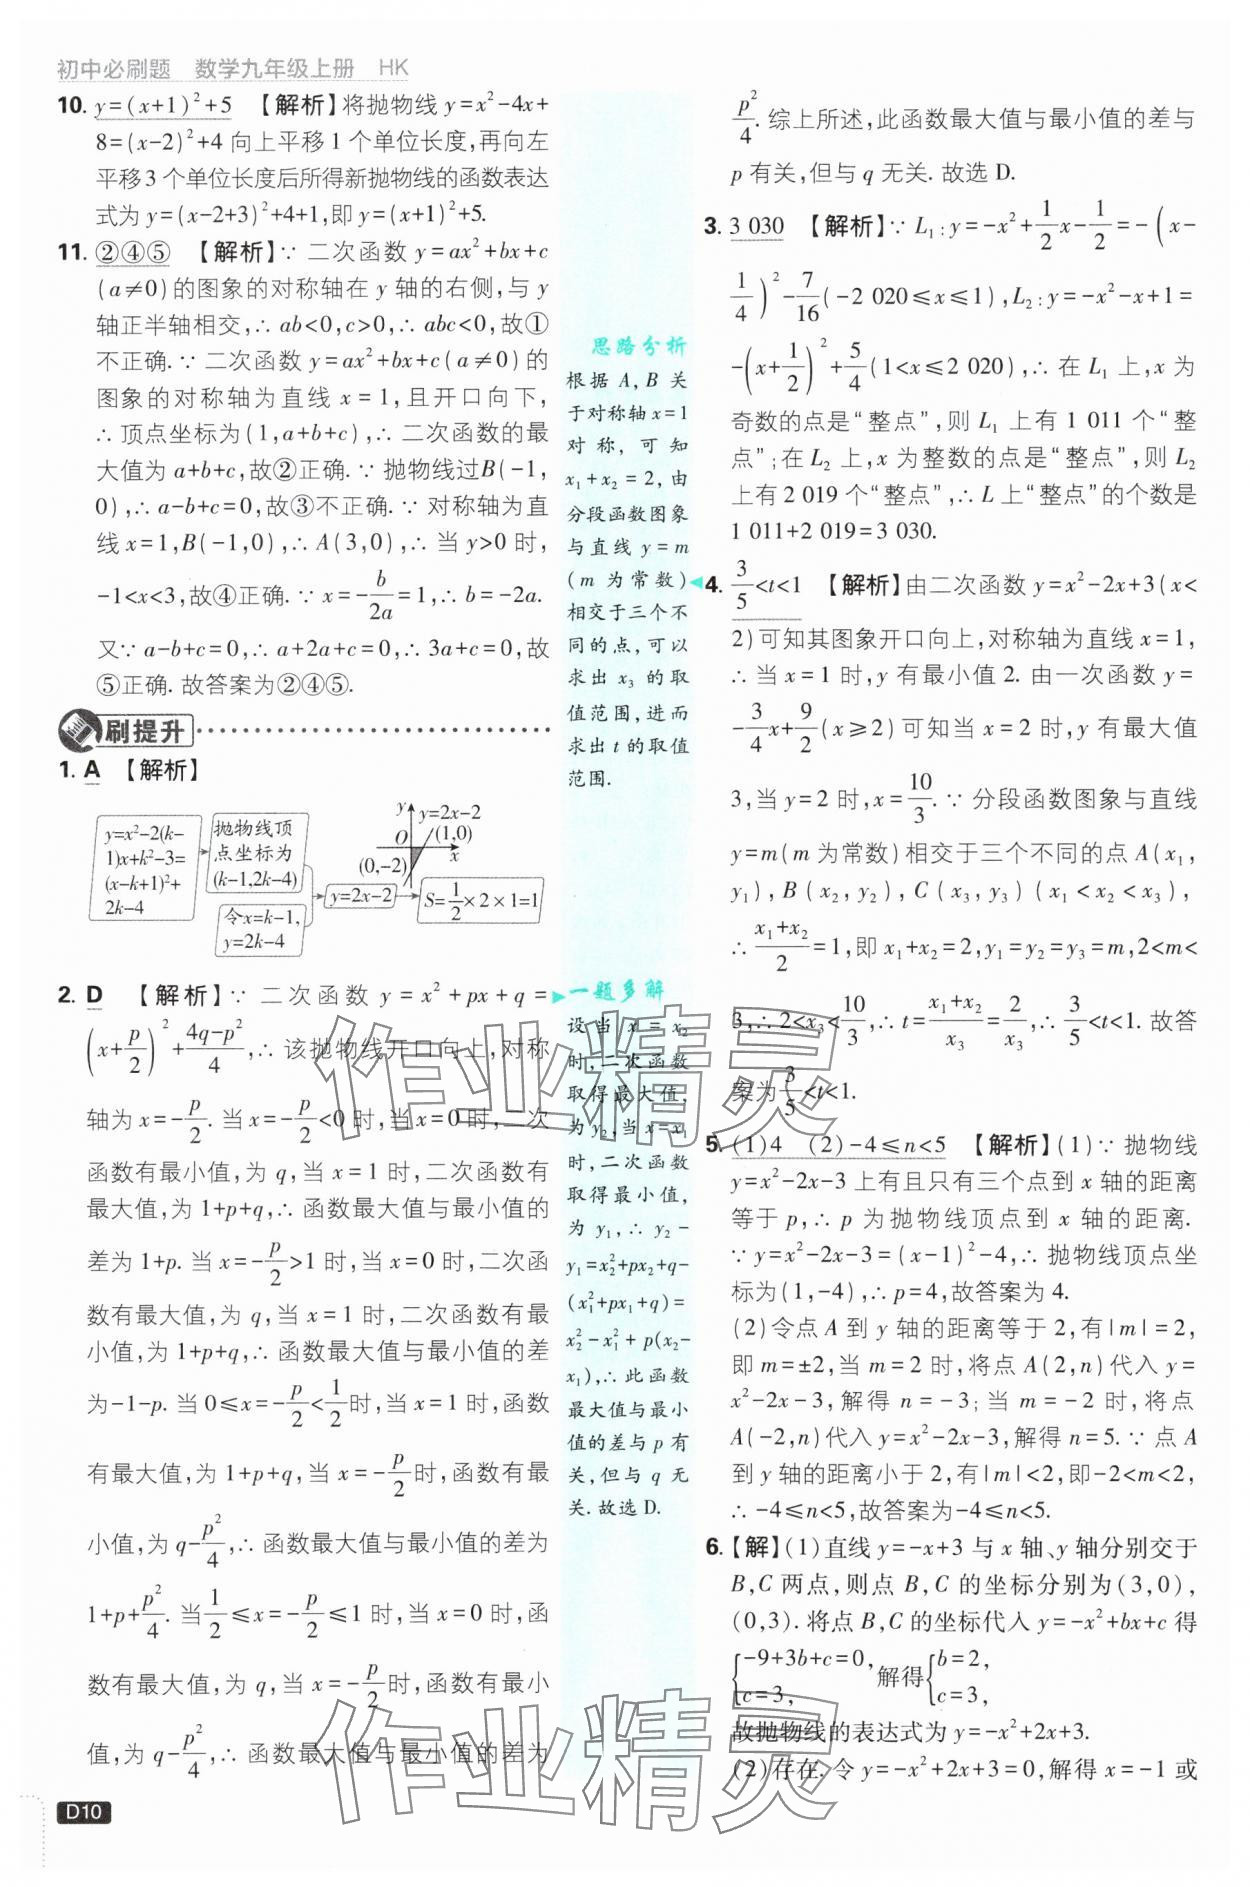 初中必刷题 数学九年级上册 HK
10. y=(x+1)²+5 【解析】将抛物线 y=x²-4x+
8=(x-2)²+4 向上平移 1 个单位长度,再向左
平移 3 个单位长度后所得新抛物线的函数表达
式为 y=(x-2+3)²+4+1,即 y=(x+1)²+5.
11. ②④⑤ 【解析】∵ 二次函数 y=ax²+bx+c
(a≠0)的图象的对称轴在 y 轴的右侧,与 y
轴正半轴相交,∴ ab<0,c>0,∴ abc<0,故①
不正确. ∵ 二次函数 y=ax²+bx+c(a≠0)的
图象的对称轴为直线 x=1,且开口向下,
∴ 顶点坐标为(1,a+b+c),∴ 二次函数的最
大值为 a+b+c,故②正确. ∵ 抛物线过B(-1,
0),∴ a-b+c=0,故③不正确. ∵ 对称轴为直
线 x=1,B(-1,0),∴ A(3,0),∴ 当 y>0 时,
-1<x<3,故④正确. ∵ x=-b/2a=1,∴ b=-2a.
又∵ a-b+c=0,∴ a+2a+c=0,∴ 3a+c=0,故
⑤正确. 故答案为②④⑤.
刷提升
1. A 【解析】
y=x²-2(k-
1)x+k²-3=
(x-k+1)²+
2k-4
抛物线顶
点坐标为
(k-1,2k-4)
令x=k-1,
y=2k-4
y=2x-2
y
y=2x-2
O
(1,0)
x
(0,-2)
S=1/2×2×1=1
2. D 【解析】∵ 二次函数 y=x²+px+q=
(x+p/2)²+(4q-p²)/4,∴ 该抛物线开口向上,对称
轴为 x=-p/2. 当 x=-p/2<0 时,当 x=0 时,二次
函数有最小值,为 q,当 x=1 时,二次函数有
最大值,为 1+p+q,∴ 函数最大值与最小值的
差为 1+p. 当 x=-p/2>1 时,当 x=0 时,二次函
数有最大值,为 q,当 x=1 时,二次函数有最
小值,为 1+p+q,∴ 函数最大值与最小值的差
为-1-p. 当 0≤x=-p/2<1/2时,当 x=1 时,函数
有最大值,为 1+p+q,当 x=-p/2时,函数有最
小值,为 q-p²/4,∴ 函数最大值与最小值的差为
1+p+p²/4. 当1/2≤x=-p/2≤1 时,当 x=0 时,函
数有最大值,为 q,当 x=-p/2时,函数有最小
值,为 q-p²/4,∴ 函数最大值与最小值的差为
D10
思路分析
根据 A,B 关
于对称轴 x=1
对称,可知
x₁+x₂=2,由
分段函数图象
与直线 y=m
(m 为常数)
相交于三个不
同的点,可以
求出 x₃ 的取
值范围,进而
求出 t 的取值
范围.
一题多解
设当 x=x₂
时,二次函数
取得最大值,
为 y₂,当 x=x₁
时,二次函数
取得最小值,
为 y₁,∴ y₂-
y₁=x₂²+px₂+q-
(x₁²+px₁+q)=
x₂²-x₁²+p(x₂-
x₁),∴ 此函数
最大值与最小
值的差与 p 有
关,但与 q 无
关. 故选 D.
p²/4. 综上所述,此函数最大值与最小值的差与
p 有关,但与 q 无关. 故选 D.
3. 3 030 【解析】∵ L₁:y=-x²+1/2x-1/2=-(x-
1/4)²-7/16(-2 020≤x≤1),L₂:y=-x²-x+1=
-(x+1/2)²+5/4(1<x≤2 020),∴ 在 L₁ 上,x 为
奇数的点是“整点”,则 L₁ 上有 1 011 个“整
点”;在 L₂ 上,x 为整数的点是“整点”,则 L₂
上有 2 019 个“整点”,∴ L 上“整点”的个数是
1 011+2 019=3 030.
4. 3/5<t<1 【解析】由二次函数 y=x²-2x+3(x<
2)可知其图象开口向上,对称轴为直线 x=1,
∴ 当 x=1 时,y 有最小值 2. 由一次函数 y=
-3/4x+9/2(x≥2)可知当 x=2 时,y 有最大值
3,当 y=2 时,x=10/3. ∵ 分段函数图象与直线
y=m(m 为常数)相交于三个不同的点 A(x₁,
y₁),B(x₂,y₂),C(x₃,y₃)(x₁<x₂<x₃),
∴ (x₁+x₂)/2=1,即 x₁+x₂=2,y₁=y₂=y₃=m,2<m<
3,∴ 2<x₃<10/3,∴ t=(x₁+x₂)/x₃=2/x₃,∴ 3/5<t<1. 故答
案为3/5<t<1.
5. (1)4 (2)-4≤n<5 【解析】(1)∵ 抛物线
y=x²-2x-3 上有且只有三个点到 x 轴的距离
等于 p,∴ p 为抛物线顶点到 x 轴的距离.
∵ y=x²-2x-3=(x-1)²-4,∴ 抛物线顶点坐
标为(1,-4),∴ p=4,故答案为 4.
(2)令点 A 到 y 轴的距离等于 2,有|m|=2,
即 m=±2,当 m=2 时,将点 A(2,n)代入 y=
x²-2x-3,解得 n=-3;当 m=-2 时,将点
A(-2,n)代入 y=x²-2x-3,解得 n=5. ∵ 点 A
到 y 轴的距离小于 2,有|m|<2,即-2<m<2,
∴ -4≤n<5,故答案为-4≤n<5.
6. 【解】(1)直线 y=-x+3 与 x 轴、y 轴分别交于
B,C 两点,则点 B,C 的坐标分别为(3,0),
(0,3). 将点 B,C 的坐标代入 y=-x²+bx+c 得
{-9+3b+c=0, c=3, 解得{b=2, c=3,
故抛物线的表达式为 y=-x²+2x+3.
(2)存在. 令 y=-x²+2x+3=0,解得 x=-1 或
作业精灵
作业精灵